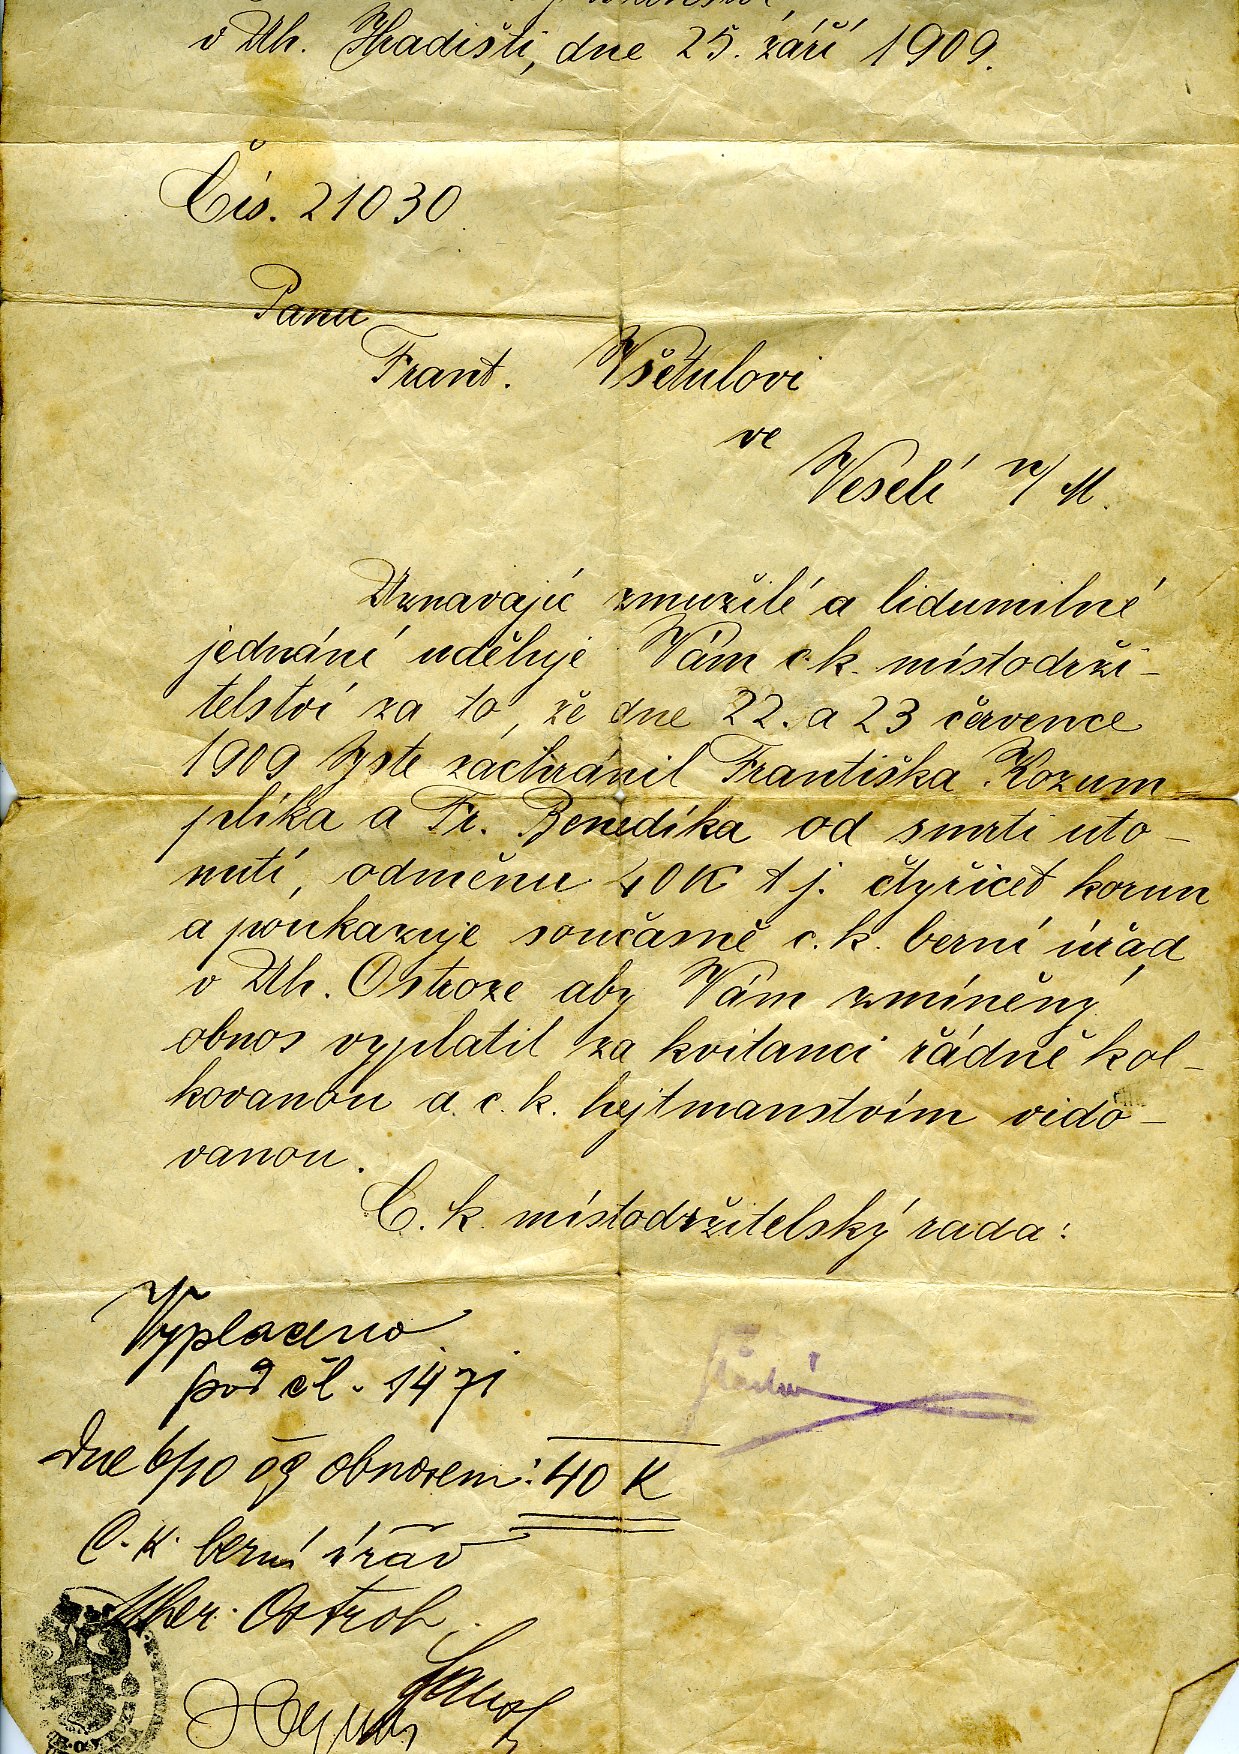 v Uh. Hradišti, dne 25. září 1909.
Čís. 21030
Panu
Frant. Všetulovi
ve
Veselí n/M.
Uznavajíc zmužilé a lidumilné
jednání uděluje Vám c.k. místodrži-
telství za to, že dne 22. a 23 července
1909 jste zachránil Františka Rozum-
plíka a Fr. Benedíka od smrti uto-
nutí, odměnu 40K t j. čtyřicet korun
a poukazuje současně c. k. berní úřad
v Uh. Ostroze aby Vám zmíněný
obnos vyplatil za kvitanci řádně kol-
kovanou a c. k. hejtmanstvím vido-
vanou.
C. k. místodržitelský rada:
Vyplaceno
pod čl. 1471
Dne 6/10 09 obnosem: 40 K
C. K. berní úřad
Uher. Ostroh